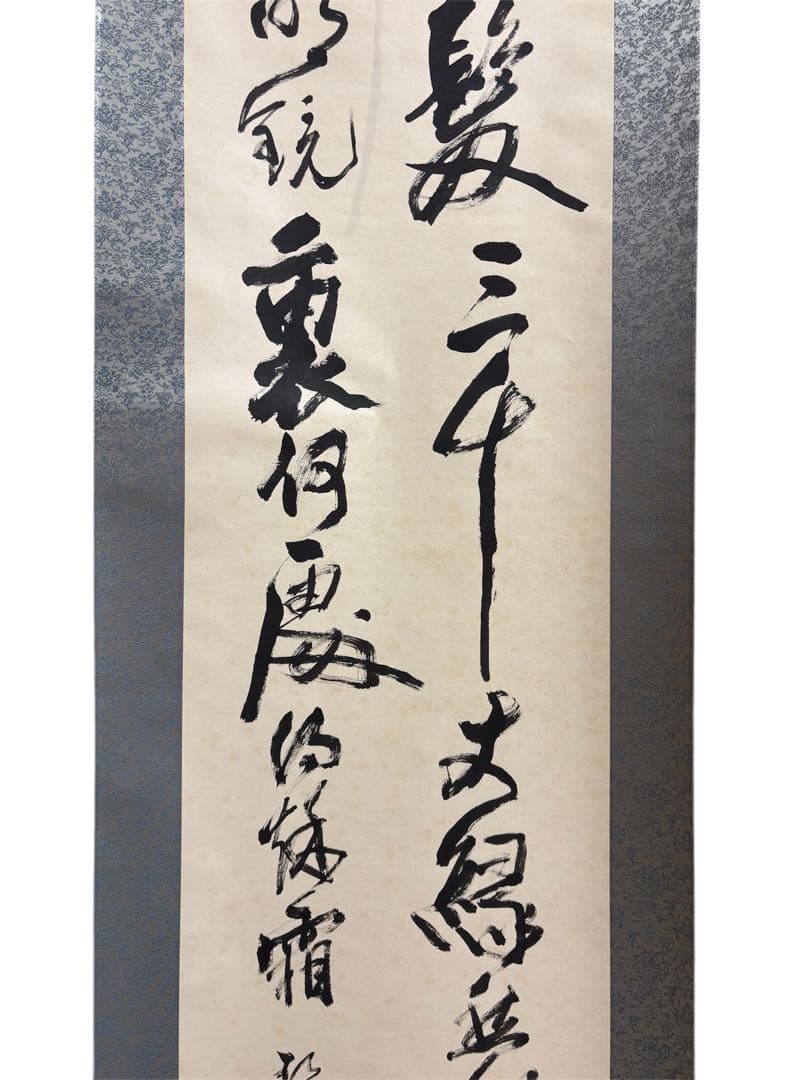 髮三千丈緣愁
明鏡裏何處得秋霜